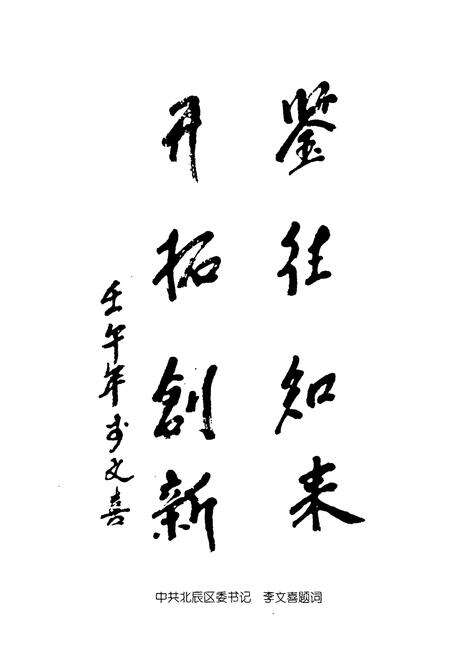 鉴往知来
开拓创新
壬午年李文喜
中共北辰区委书记 李文喜题词